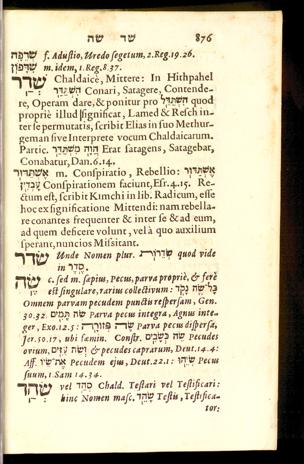 שד שה 876
שְׁדֵפָה f. Adustio, Uredo segetum, 2. Reg. 19. 26.
שִׁדָּפוֹן m. idem, 1. Reg. 8. 37.
שְׁדַר Chaldaicè, Mittere: In Hithpahel
הִשְׁתַּדַּר Conari, Satagere, Contende-
re, Operam dare, & ponitur pro הִשְׁתַּדֵּל quod
propriè illud significat, Lamed & Resch in-
ter se permutatis, scribit Elias in suo Methur-
geman sive Interprete vocum Chaldaicarum.
Partic. הֲוָה מִשְׁתַּדַּר Erat satagens, Satagebat,
Conabatur, Dan. 6. 14.
אֶשְׁתַּדּוּר m. Conspiratio, Rebellio: אֶשְׁתַּדּוּר
עָבְדִין Conspirationem faciunt, Esr. 4. 15. Re-
ctum est, scribit Kimchi in lib. Radicum, esse
hoc ex significatione Mittendi: nam rebella-
re conantes frequenter & inter se & ad eum,
ad quem deficere volunt, vel à quo auxilium
sperant, nuncios Missitant.
שדר Unde Nomen plur. שְׂדֵרוֹת quod vide
in סדר.
שֶׂה c. sed m. sæpius, Pecus, parva propriè, & ferè
est singulare, rarius collectivum: כָּל־שֶׂה נָקֹד
Omnem parvam pecudem punctis respersam, Gen.
30. 32. שֶׂה תָמִים Parva pecus integra, Agnus inte-
ger, Exo. 12. 5: שֶׂה פְזוּרָה Parva pecus dispersa,
Jer. 50. 17. ubi fœmin. Constr. שֵׂה כְשָׂבִים Pecudes
ovium, וְשֵׂה עִזִּים & pecudes caprarum, Deut. 14. 4:
Aff. אֶת־שֵׂיוֹ Pecudem ejus, Deut. 22. 1: שְׂיֵהוּ Pecus
suum, 1. Sam 14. 34.
שׂהד vel סְהַד Chald. Testari vel Testificari:
hinc Nomen masc. שָׂהֵד Testis, Testifica-
tor: